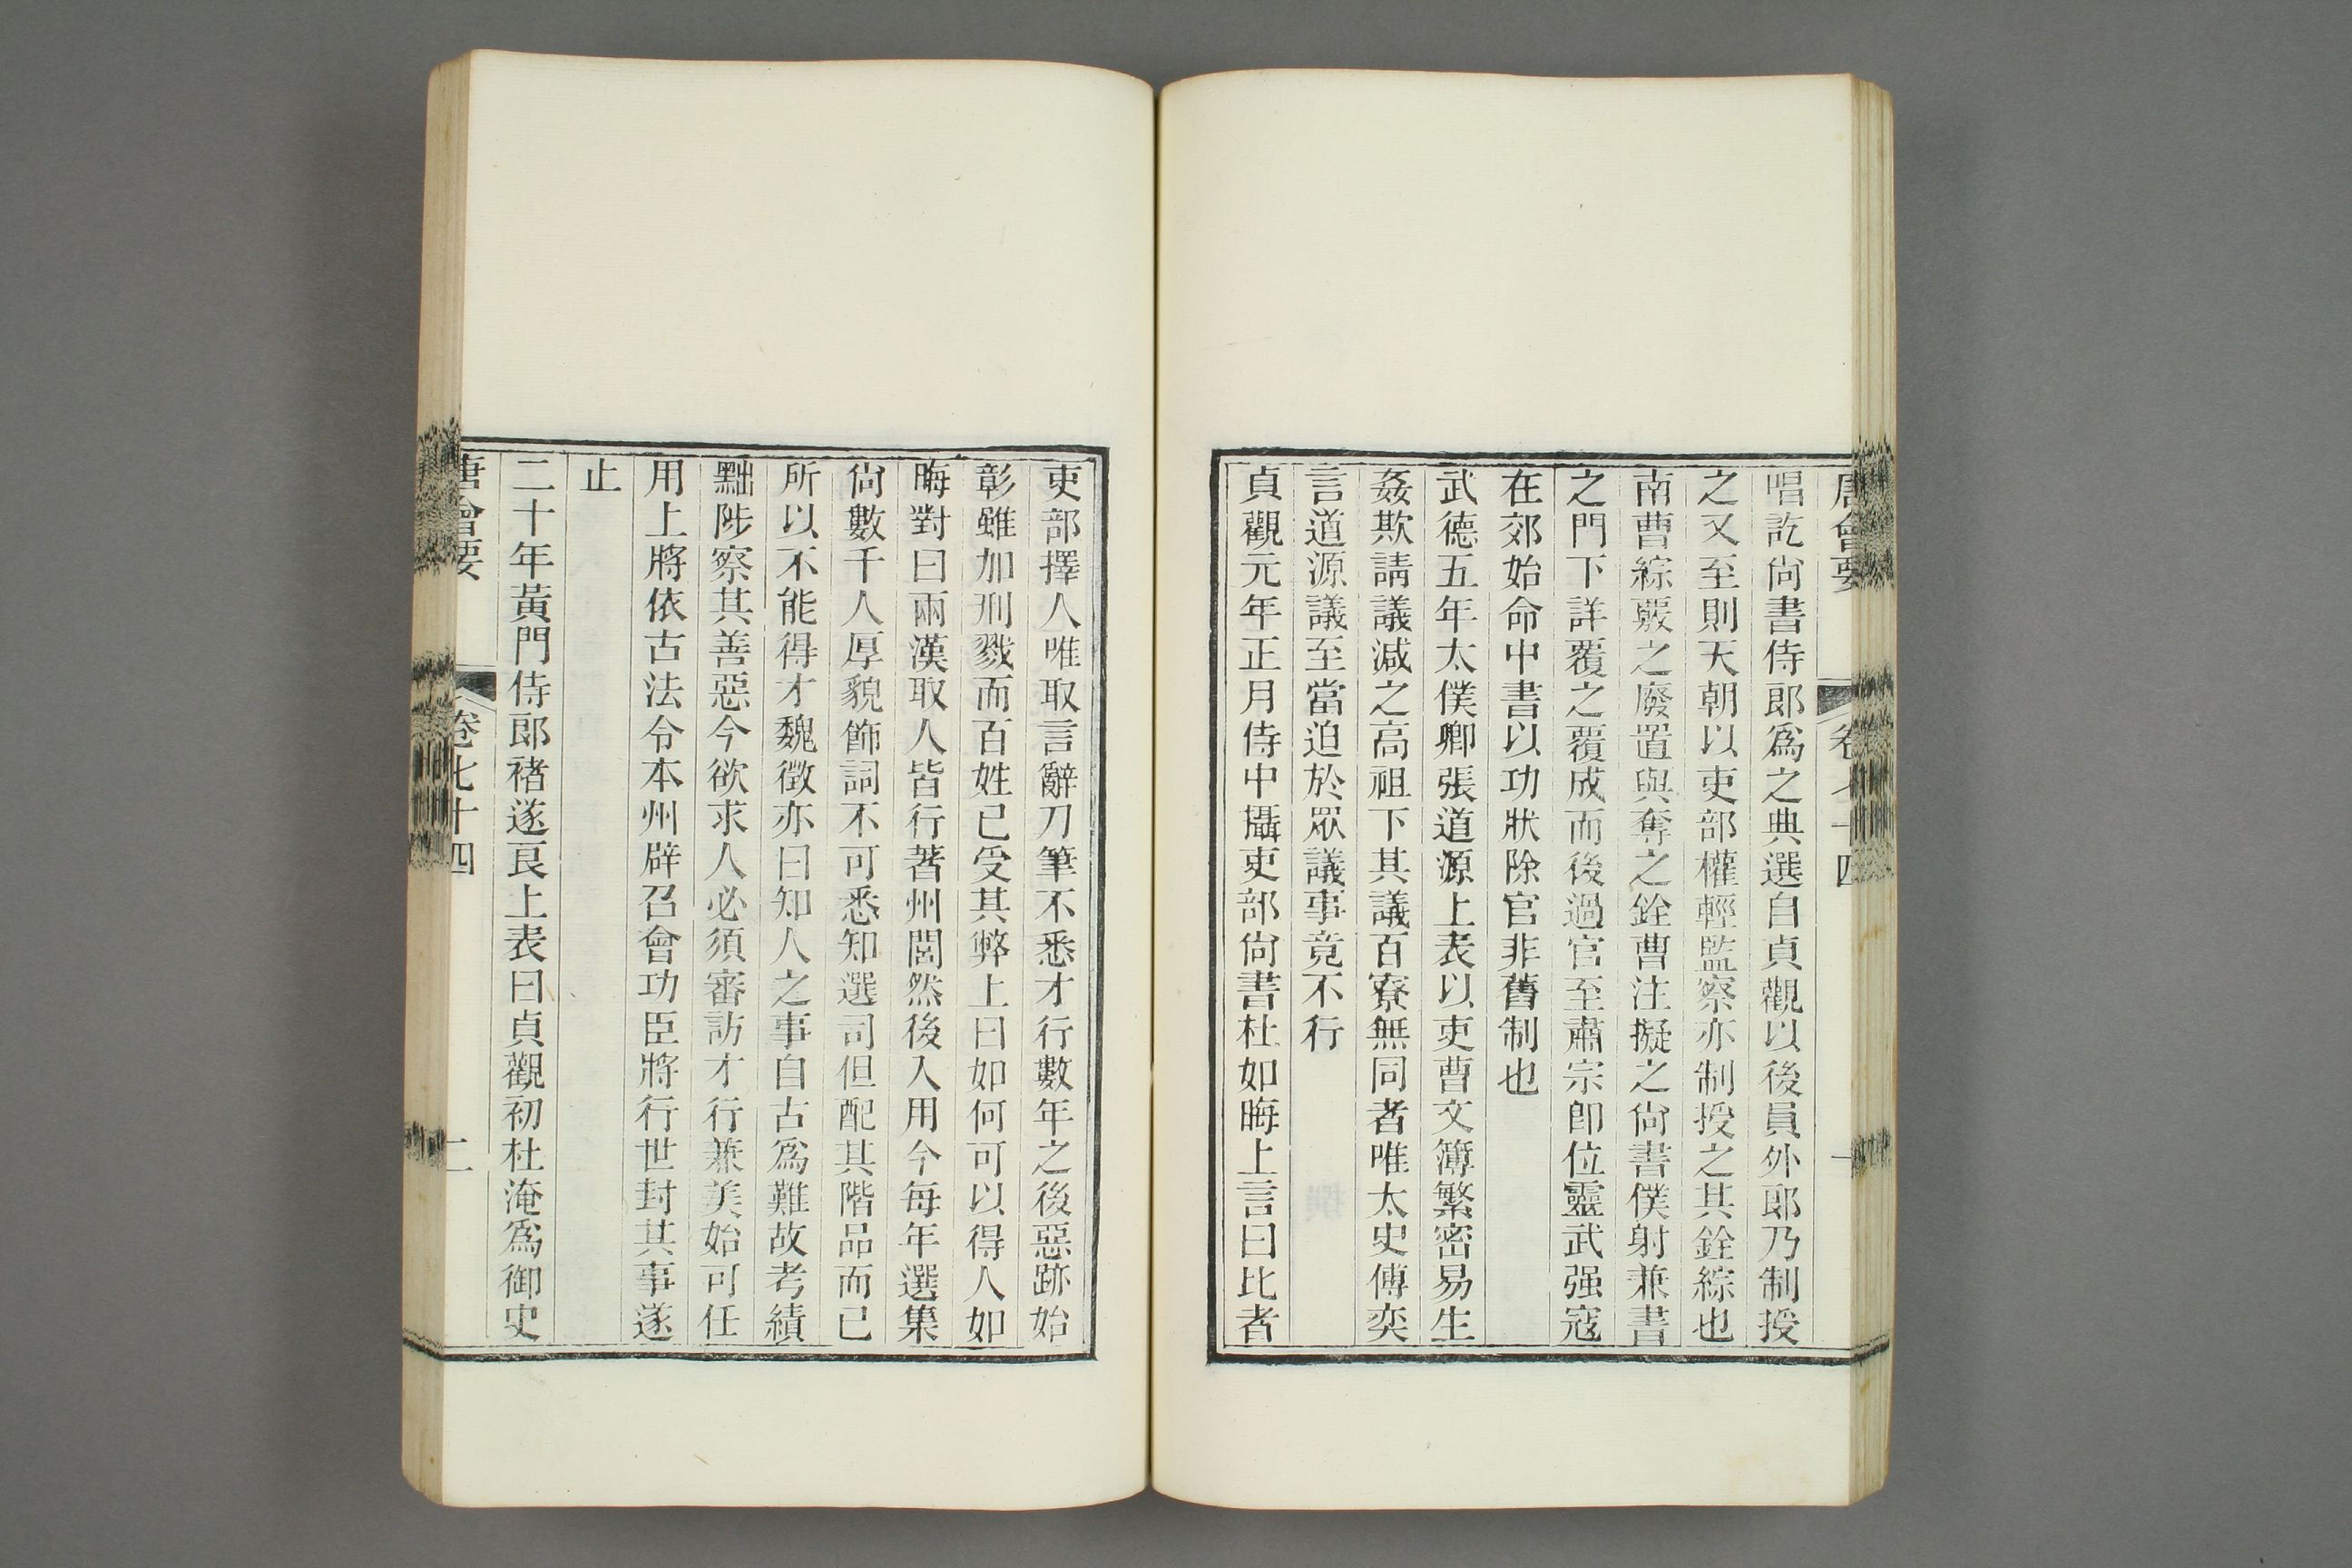 唐會要 卷七十四 一
唱訖尙書侍郎爲之典選自貞觀以後員外郎乃制授
之又至則天朝以吏部權輕監察亦制授之其銓綜也
南曹綜覈之廢置與奪之銓曹注擬之尙書僕射兼書
之門下詳覆之覆成而後過官至肅宗卽位靈武强寇
在郊始命中書以功狀除官非舊制也
武德五年太僕卿張道源上表以吏曹文簿繁密易生
姦欺請議減之高祖下其議百寮無同者唯太史傅奕
言道源議至當迫於眾議事竟不行
貞觀元年正月侍中攝吏部尙書杜如晦上言曰比者
吏部擇人唯取言辭刀筆不悉才行數年之後惡跡始
彰雖加刑戮而百姓已受其弊上曰如何可以得人如
晦對曰兩漢取人皆行著州閭然後入用今每年選集
尙數千人厚貌飾詞不可悉知選司但配其階品而已
所以不能得才魏徵亦曰知人之事自古爲難故考績
黜陟察其善惡今欲求人必須審訪才行兼美始可任
用上將依古法令本州辟召會功臣將行世封其事遂
止
二十年黃門侍郎褚遂良上表曰貞觀初杜淹爲御史
唐會要 卷七十四 二